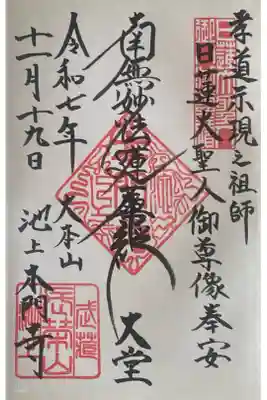 孝道示現之祖師
日蓮大聖人御尊像奉安
南無妙法蓮華経
大堂
令和七年
十一月十九日
大本山
池上本門寺